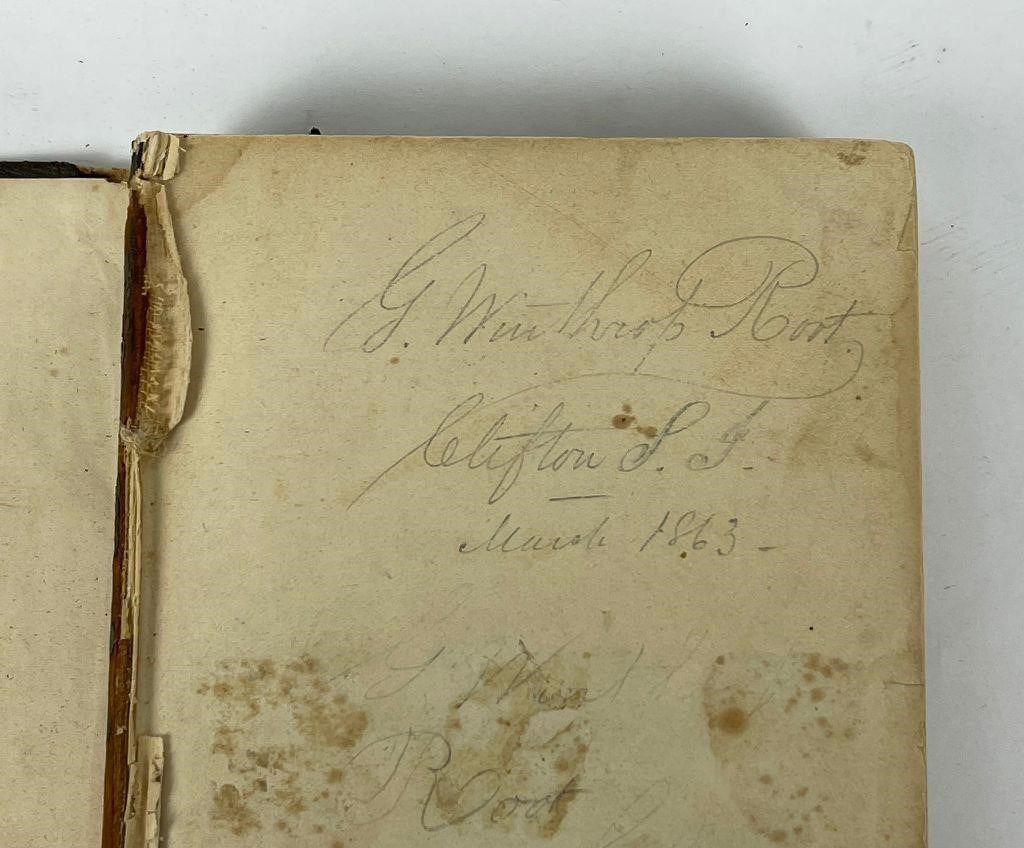 G. Winthrop Root.
Clifton S. I.
March 1863 -
G. Wint
Root